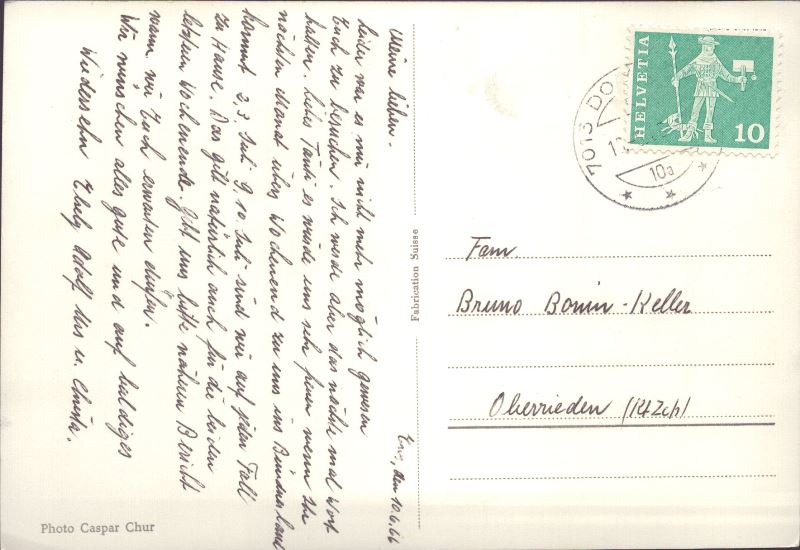 Ems, den 10.6.66
Meine lieben.
leider war es mir nicht mehr möglich gewesen
Euch zu besuchen. Ich werde aber das nächste mal Wort
halten. liebes Tanti es würde uns sehr freuen wenn Ihr
nächsten Monat übers Wochenend zu uns ins Bündnerland
kommt 2,3. Juli 9,10. Juli sind wir auf jeden Fall
zu Hause. Das gilt natürlich auch für die beiden
letzten Wochenende. gibt uns bitte nähren Bericht
wann wir Euch erwarten dürfen.
Wir wünschen alles gute und auf baldiges
Wiedersehn Adolf u. Christa.
Fabrication Suisse
Photo Caspar Chur
HELVETIA
10
7013 DO
10a
Fam.
Bruno Bonin-Keller
Oberrieden (Kt Zch)